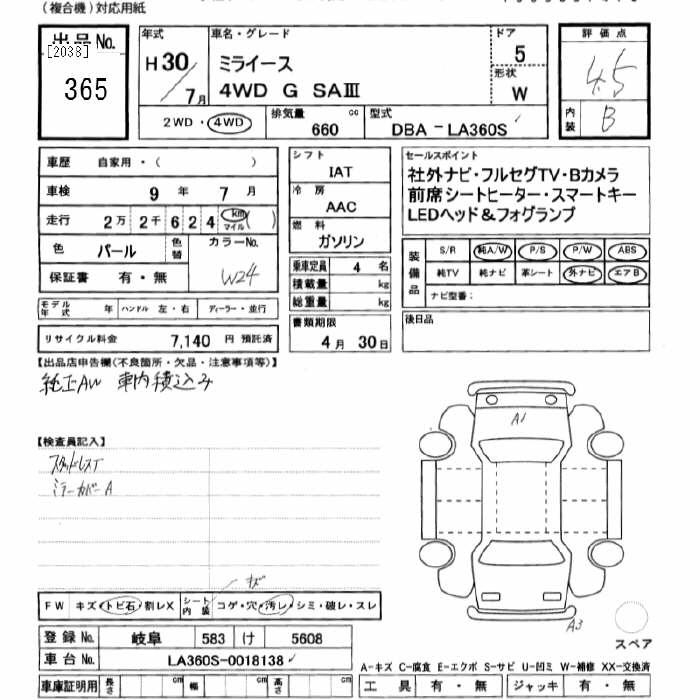 (複合機)対応用紙
出品No.
[2038]
365
年式
H30/7月
車名・グレード
ミライース
4WD G SAⅢ
ドア
5
形状
W
評価点
4.5
内装
B
2WD・4WD
排気量
660 cc
型式
DBA-LA360S
車歴 自家用・( )
車検 9年 7月
走行 2万 2千 6 2 4 km マイル ( )
色 パール 色替 カラーNo.
W24
保証書 有・無
モデル年式 年 ハンドル 左・右 ディーラー・並行
リサイクル料金 7,140 円 預託済
シフト
IAT
冷房
AAC
燃料
ガソリン
乗車定員 4 名
積載量 kg
総重量 kg
書類期限
4月 30日
セールスポイント
社外ナビ・フルセグTV・Bカメラ
前席シートヒーター・スマートキー
LEDヘッド&フォグランプ
装備品
S/R 純A/W P/S P/W ABS
純TV 純ナビ 革シート 外ナビ エアB
ナビ型番:
後日品
【出品店申告欄(不良箇所・欠品・注意事項等)】
純正AW 車内積込み
【検査員記入】
スタッドレスT
ミラーカバーA
キズ
FW キズ・トビ石・割レX シート内装 コゲ・穴・汚レ・シミ・破レ・スレ
登録No. 岐阜 583 け 5608
車台No. LA360S-0018138
車庫証明用 長さ cm 幅 cm 高さ cm
A1
A3
スペア
A-キズ C-腐食 E-エクボ S-サビ U-凹ミ W-補修 XX-交換済
工具 有・無 ジャッキ 有・無